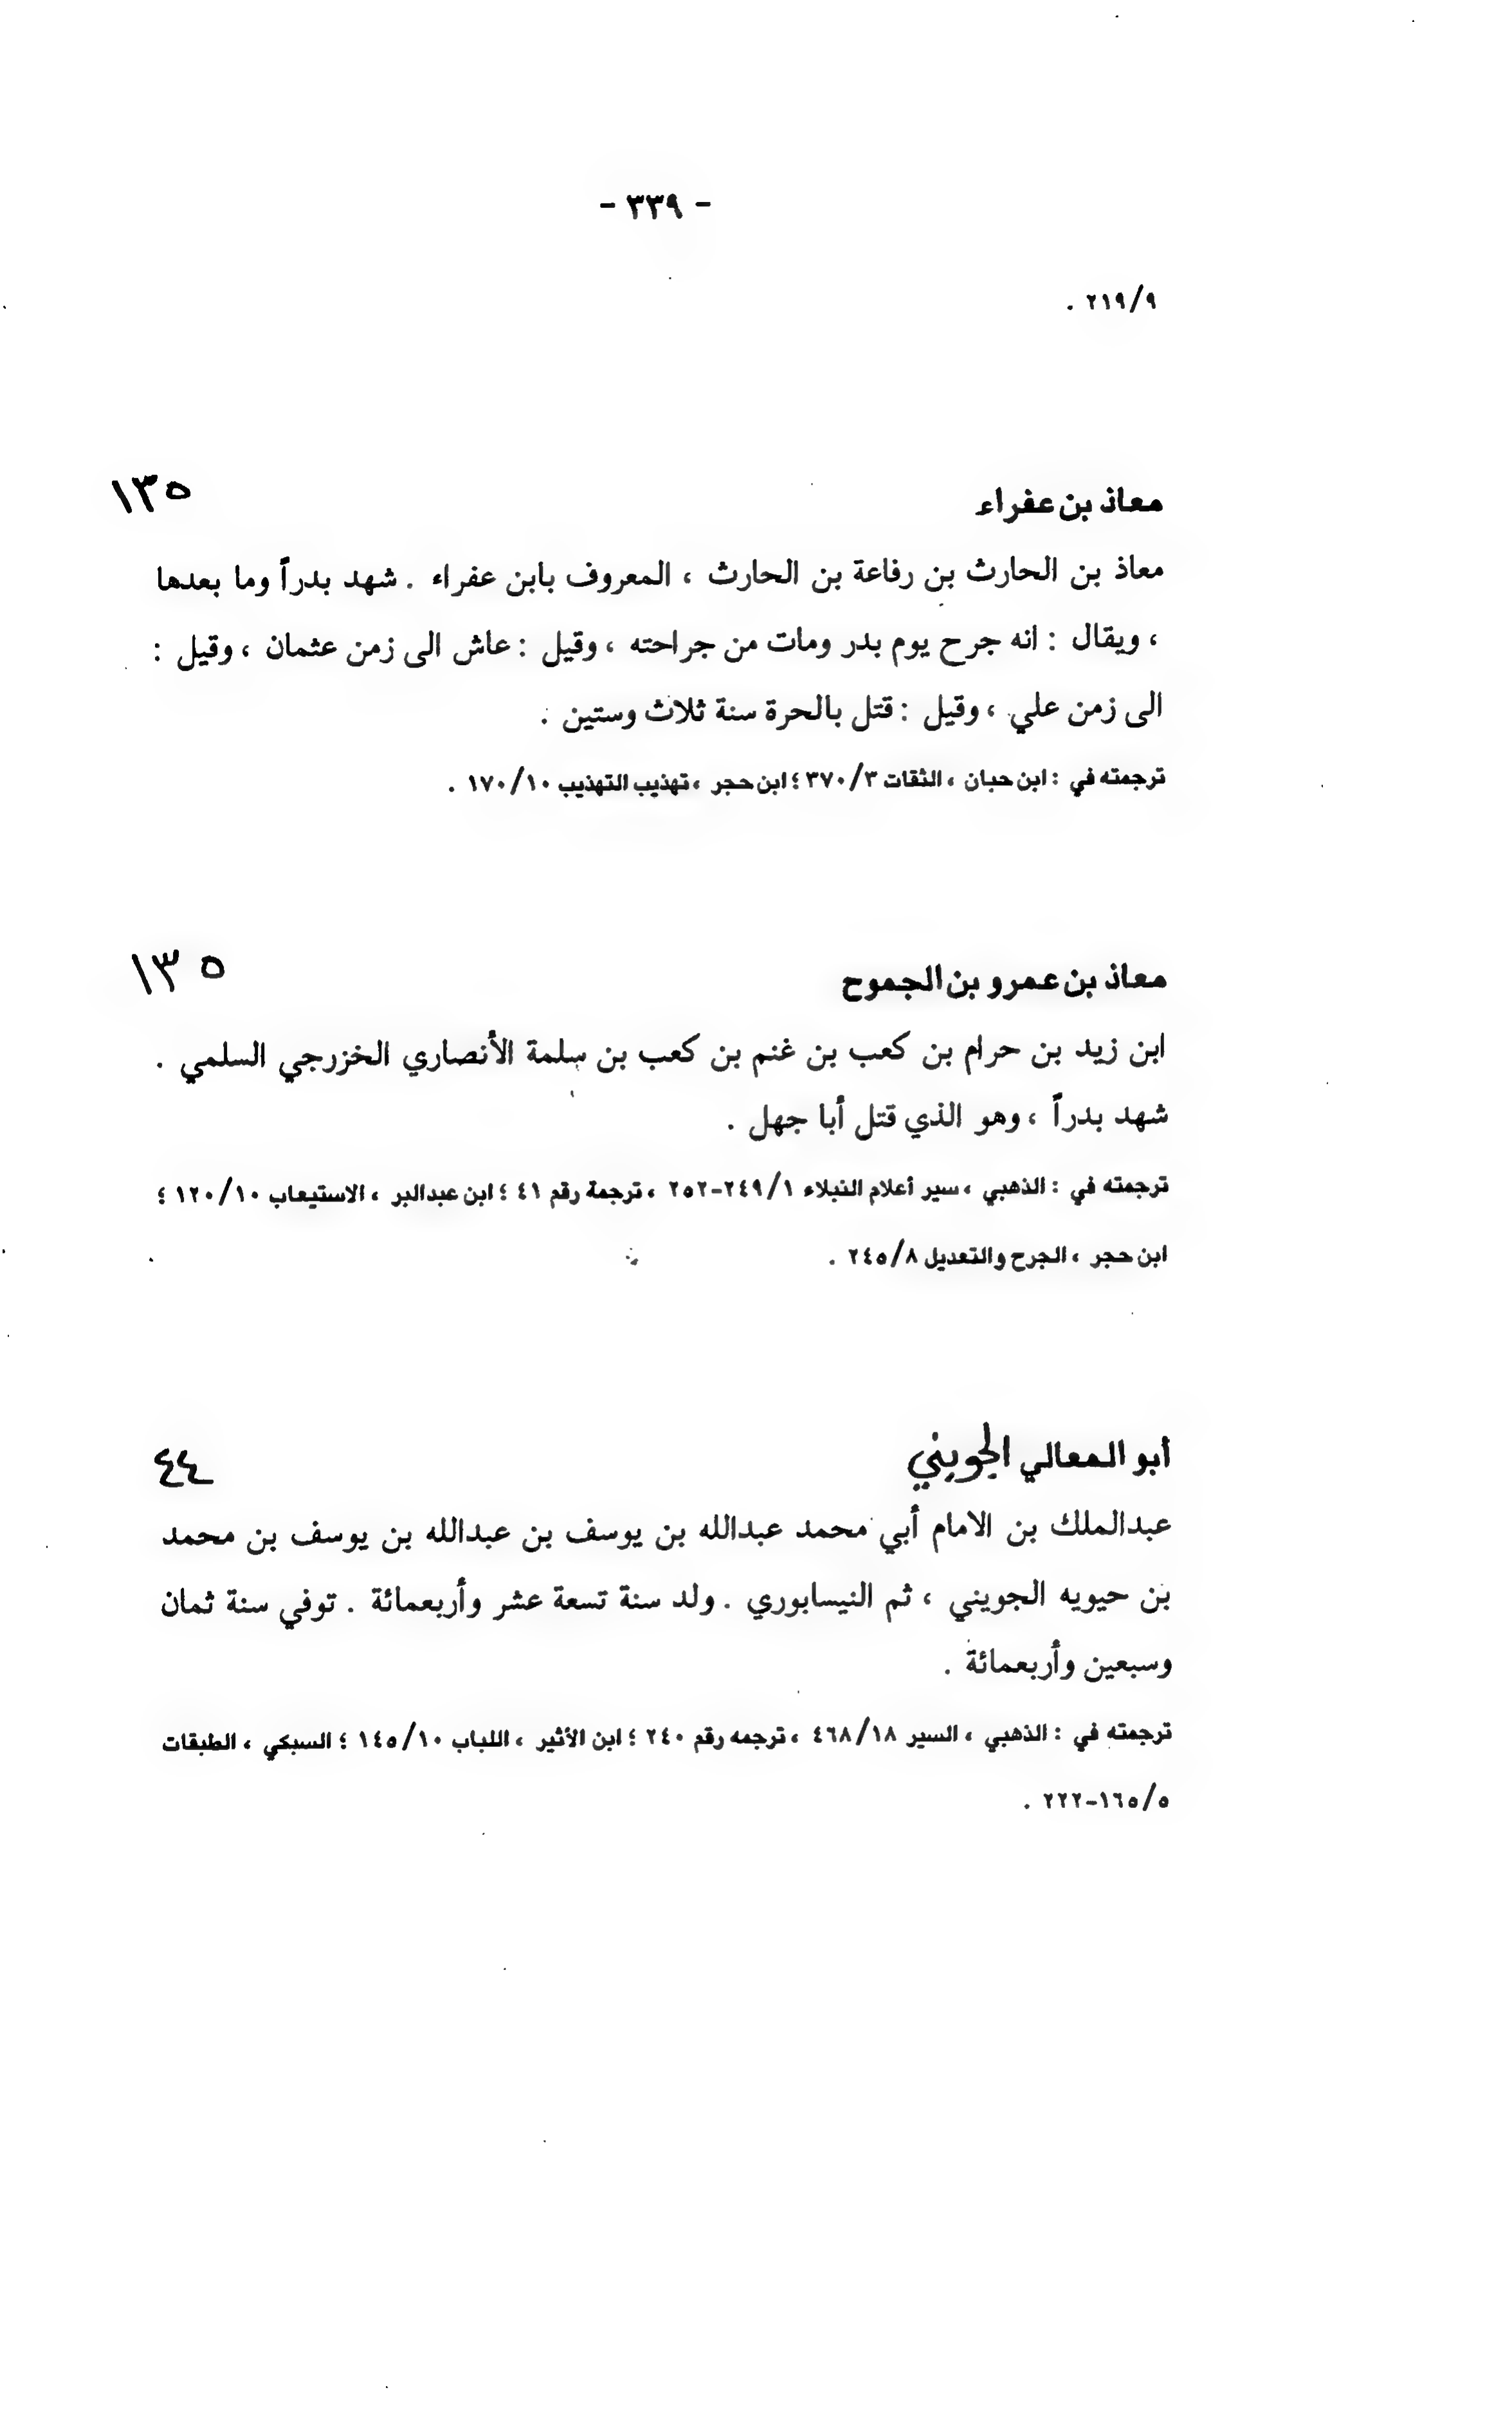 - ٣٣٩ -
٢١٩/٩ .
معاذ بن عفراء ١٣٥
معاذ بن الحارث بن رفاعة بن الحارث ، المعروف بابن عفراء . شهد بدراً وما بعدها
، ويقال : انه جرح يوم بدر ومات من جراحته ، وقيل : عاش الى زمن عثمان ، وقيل :
الى زمن علي ، وقيل : قتل بالحرة سنة ثلاث وستين .
ترجمته في : ابن حبان ، الثقات ٣٧٠/٣ ؛ ابن حجر ، تهذيب التهذيب ١٧٠/١٠ .
معاذ بن عمرو بن الجموح ١٣٥
ابن زيد بن حرام بن كعب بن غنم بن كعب بن سلمة الأنصاري الخزرجي السلمي .
شهد بدراً ، وهو الذي قتل أبا جهل .
ترجمته في : الذهبي ، سير أعلام النبلاء ٢٤٩/١-٢٥٢ ، ترجمة رقم ٤١ ؛ ابن عبدالبر ، الاستيعاب ١٢٠/١٠ ؛
ابن حجر ، الجرح والتعديل ٢٤٥/٨ .
أبو المعالي الجويني ٤٤
عبدالملك بن الامام أبي محمد عبدالله بن يوسف بن عبدالله بن يوسف بن محمد
بن حيويه الجويني ، ثم النيسابوري . ولد سنة تسعة عشر وأربعمائة . توفي سنة ثمان
وسبعين وأربعمائة .
ترجمته في : الذهبي ، السير ٤٦٨/١٨ ، ترجمه رقم ٢٤٠ ؛ ابن الأثير ، اللباب ١٤٥/١٠ ؛ السبكي ، الطبقات
١٦٥/٥-٢٢٢ .